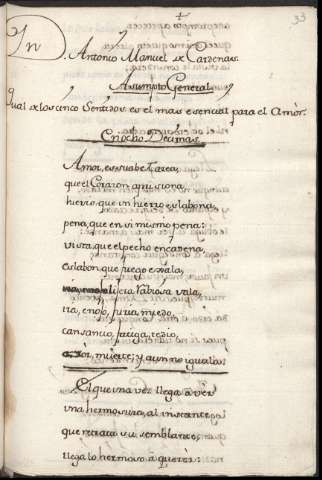 33
D. Antonio Manuel de Cardenas.
Asumpto General
Qual de los cinco Sentidos es el mas esencial para el Amòr.
En ocho Decimas.
Amor, es suabe tarea,
que el Corazon
hierro, que un hierro eslabona,
pena, que en si mismo pena:
viva, que el pecho encadena,
eslabon, que fuego exala,
sabrosa
ira, enojo, furia, miedo,
cansancio, fatiga, tedio,
muerte; y aun no iguala.
El que una vez llega à vèr
una hermosura, al instante
que retrata su semblante,
llega lo hermoso à querèr: